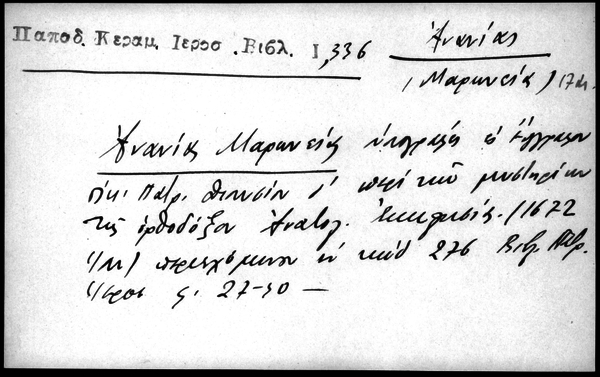 Παποδ. Κεραμ. Ιεροσ. Βιβλ. I, 336
Ἀνανίας
(Μαρωνείας) 17 αι.
Ἀνανίας Μαρωνείας ὑπογραφεὺς ἐν ἐγγράφῳ
Οἰκ. Πατρ. Διονυσίου Δ' περὶ τῶν μυστηρίων
τῆς ὀρθοδόξου Ἀνατολ. Ἐκκλησίας. (1672
περιεχόμενον ἐν κώδ. 276 Βιβλ. Πατρ.
Ἱεροσ. σ. 27-30 —